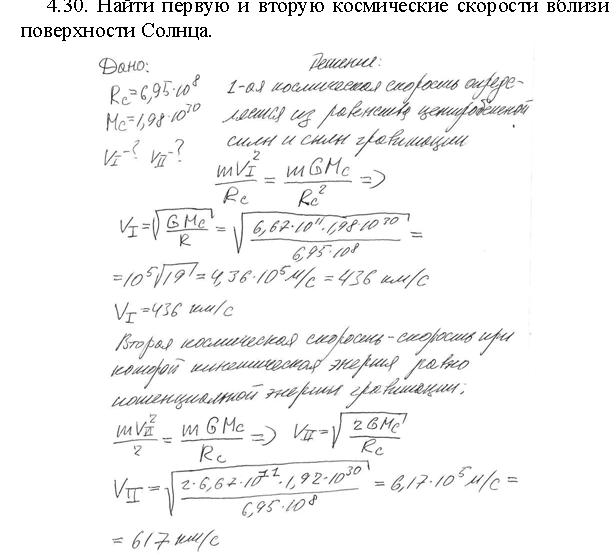 4.30. Найти первую и вторую космические скорости вблизи
поверхности Солнца.
Дано: Решение:
Rc=6,95·10^8 1-ая космическая скорость опреде-
Mc=1,98·10^30 ляется из равенства центробежной
V_I-? V_II-? силы и силы гравитации
mV_I^2/Rc = mGMc/Rc^2 =>
V_I=√(GMc/R) = √(6,67·10^11·1,98·10^30/6,95·10^8) =
=10^5√19=4,36·10^5 м/с = 436 км/с
V_I=436 км/с
Вторая космическая скорость - скорость при
которой кинетическая энергия равно
потенциальной энергии гравитации;
mV_II^2/2 = mGMc/Rc => V_II=√(2GMc/Rc)
V_II=√(2·6,67·10^11·1,92·10^30/6,95·10^8) = 6,17·10^5 м/с =
= 617 км/с